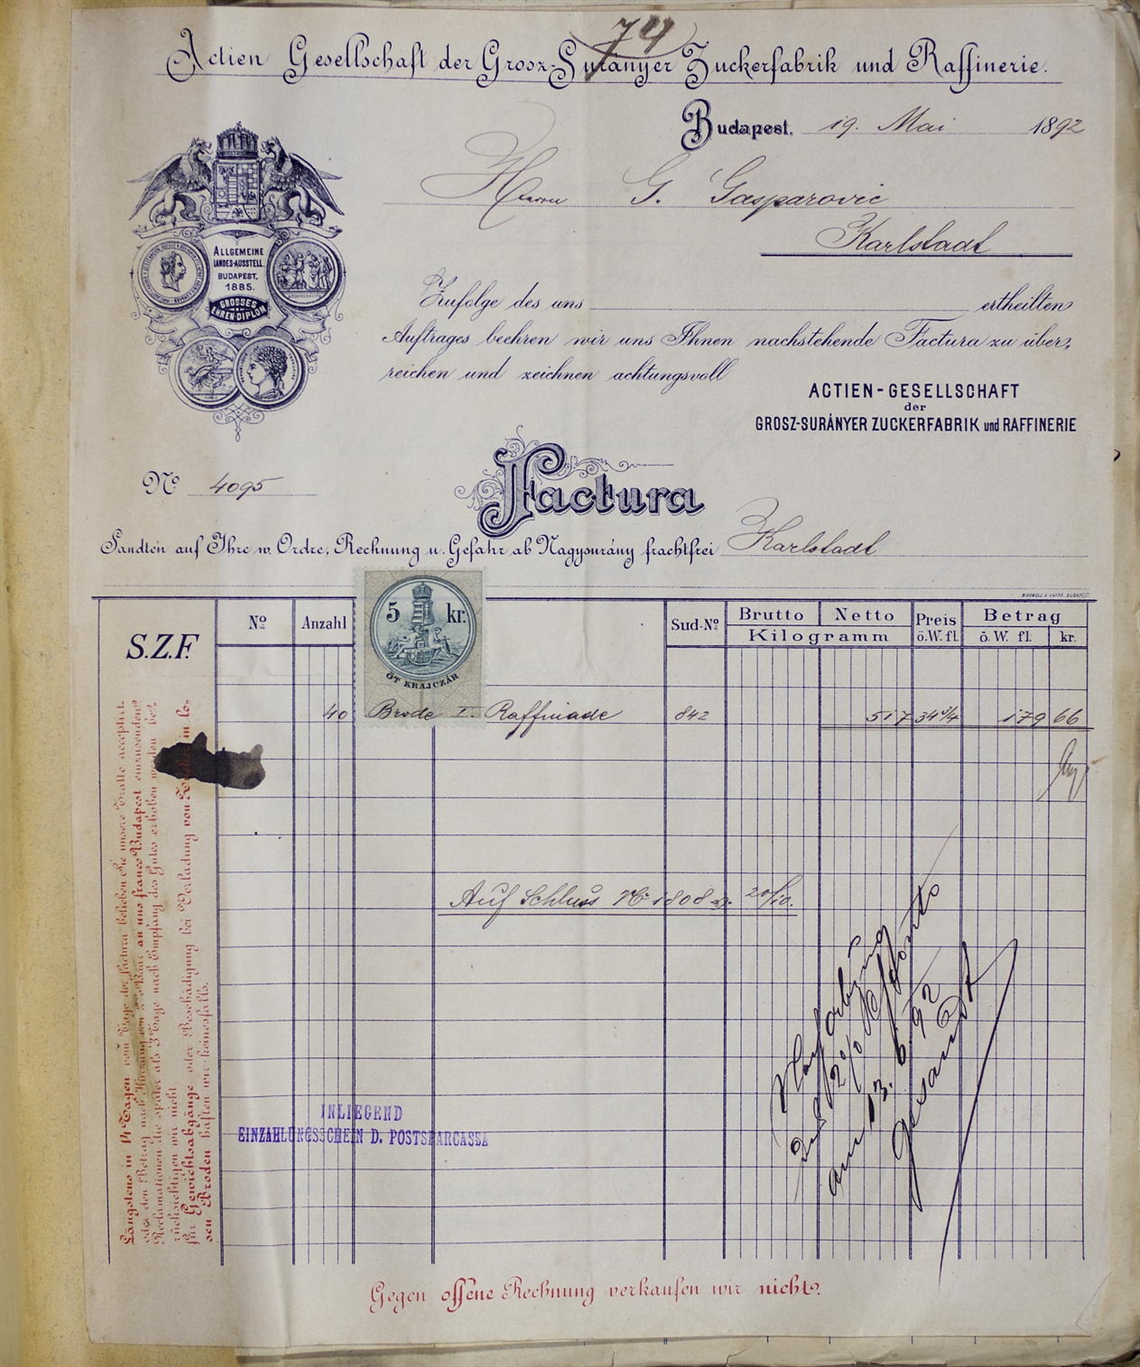 74
Actien Gesellschaft der Grosz-Surányer Zuckerfabrik und Raffinerie.
Budapest, 19. Mai 1892
Herrn G. Gasparovic
Karlstadt
ALLGEMEINE
LANDES-AUSSTELL.
BUDAPEST,
1885.
GROSSES
EHREN-DIPLOM
Zufolge des uns ertheilten
Auftrages beehren wir uns Ihnen nachstehende Factura zu über-
reichen und zeichnen achtungsvoll
ACTIEN-GESELLSCHAFT
der
GROSZ-SURÁNYER ZUCKERFABRIK und RAFFINERIE
No 4095
Factura
Sandten auf Ihre w. Ordre, Rechnung u. Gefahr ab Nagysurány frachtfrei Karlstadt
S.Z.F.
No Anzahl Sud-No Brutto Netto Preis Betrag
Kilogramm ö.W. fl. ö. W. fl. kr.
5 kr.
ÖT KRAJCZÁR
40 Brode I. Raffinade 842 517 34 3/4 179 66
Auf Schluss No 1808 20/10.
2% Sconto
am 13. 6. 92
gesandt
INLIEGEND
EINZAHLUNGSSCHEIN D. POSTSPARCASSA
Längstens in 14 Tagen vom Tage der Factura belieben Sie unsere Tratte acceptirt
oder den Betrag nach Abzug von 2% Baar an uns franco Budapest einzusenden.
Reclamationen die später als 3 Tage nach Empfang des Gutes erhoben werden be-
rücksichtigen wir nicht.
für Gewichtsabgänge oder Beschädigung bei Verladung von in lo-
sen Broden haften wir keinesfalls.
Gegen offene Rechnung verkaufen wir nicht.